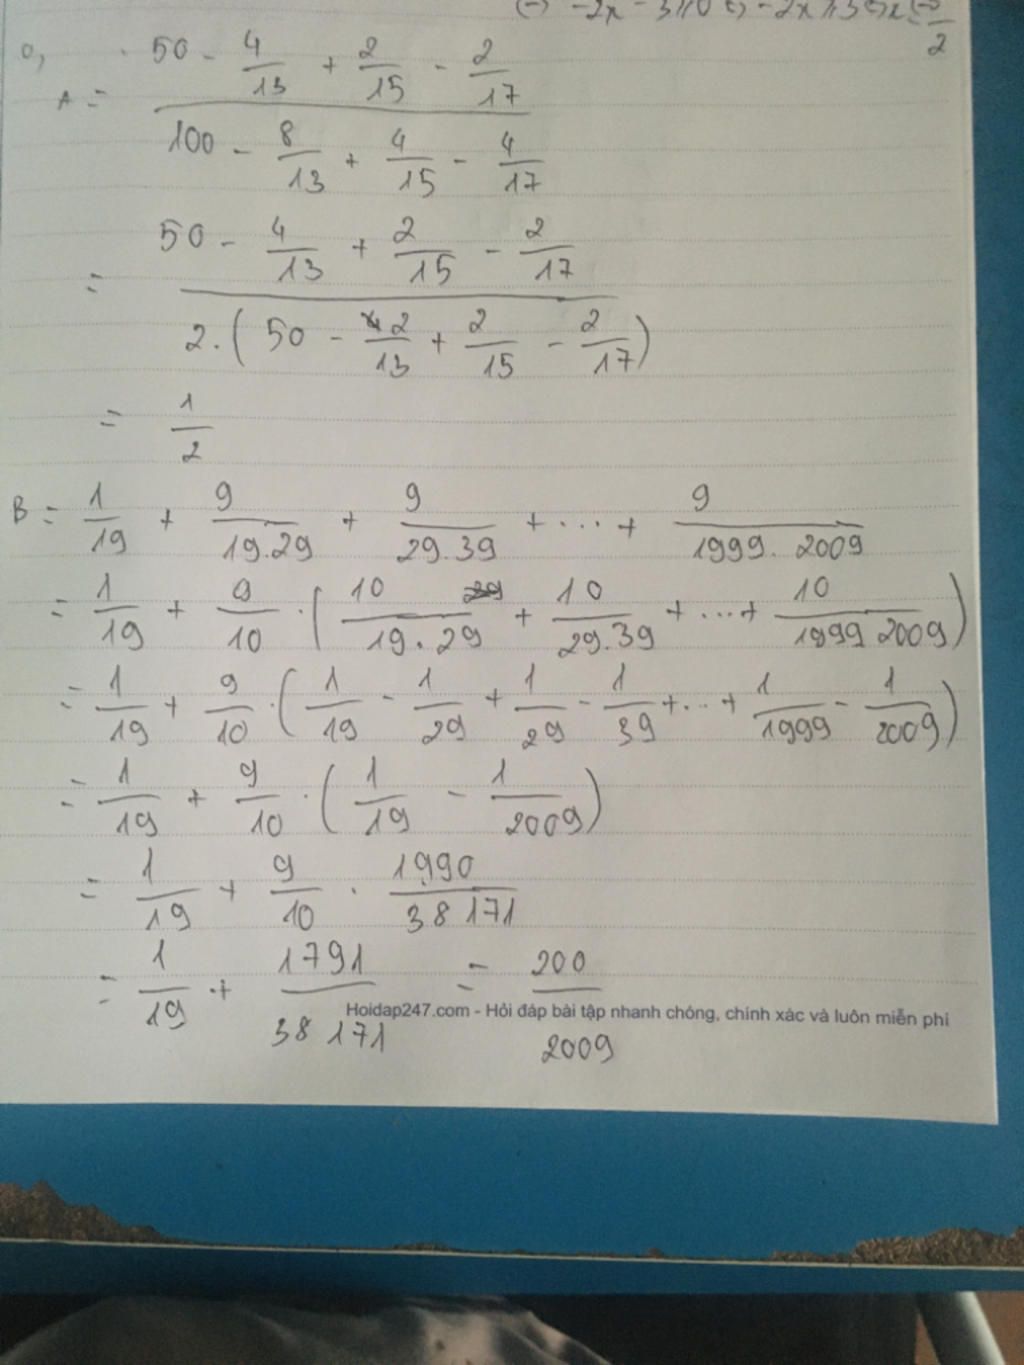 (-) -2x - 3 ≥ 0 (-) -2x ≥ 3 (-) x ≤ -3/2
A = (50 - 4/13 + 2/15 - 2/17) / (100 - 8/13 + 4/15 - 4/17)
= (50 - 4/13 + 2/15 - 2/17) / (2.(50 - 2/13 + 2/15 - 2/17))
= 1/2
B = 1/19 + 9/19.29 + 9/29.39 + ... + 9/1999.2009
= 1/19 + 9/10 . (10/19.29 + 10/29.39 + ... + 10/1999 2009)
= 1/19 + 9/10 . (1/19 - 1/29 + 1/29 - 1/39 + ... + 1/1999 - 1/2009)
= 1/19 + 9/10 . (1/19 - 1/2009)
= 1/19 + 9/10 . 1990/38171
= 1/19 + 1791/38171 = 200/2009
Hoidap247.com - Hỏi đáp bài tập nhanh chóng, chính xác và luôn miễn phí